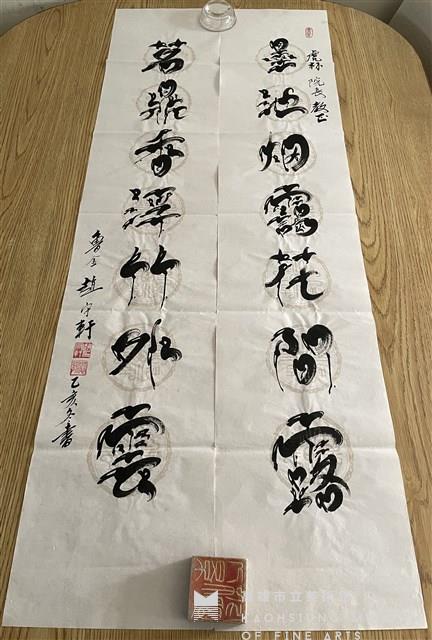 虎林 院長 教正
墨池烟靄花間露
茗鼎香浮竹外雲
趙守軒
乙亥冬書
高雄市立美術館
KAOHSIUNG
OF FINE ARTS